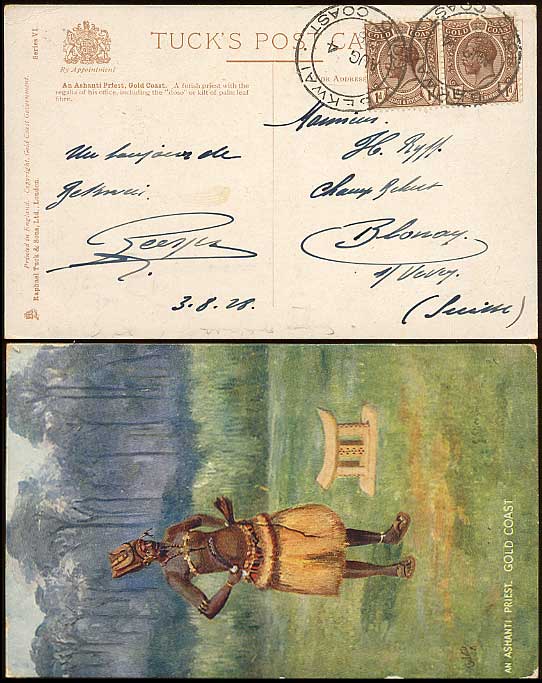 Series VI.
TUCK'S POST CA
By Appointment
FOR ADDRESS
An Ashanti Priest, Gold Coast. A fetish priest with the
regalia of his office, including the "doso" or kilt of palm leaf
fibre.
Printed in England. Copyright, Gold Coast Government.
Raphael Tuck & Sons, Ltd., London.
GOLD COAST
GOLD COAST
BEKWAI
COAST
AUG
Un bonjour de
Bekwai.
3.8.28.
Monsieur
H. Ryff.
Blonay.
s/ Vevey.
(Suisse)
AN ASHANTI PRIEST. GOLD COAST